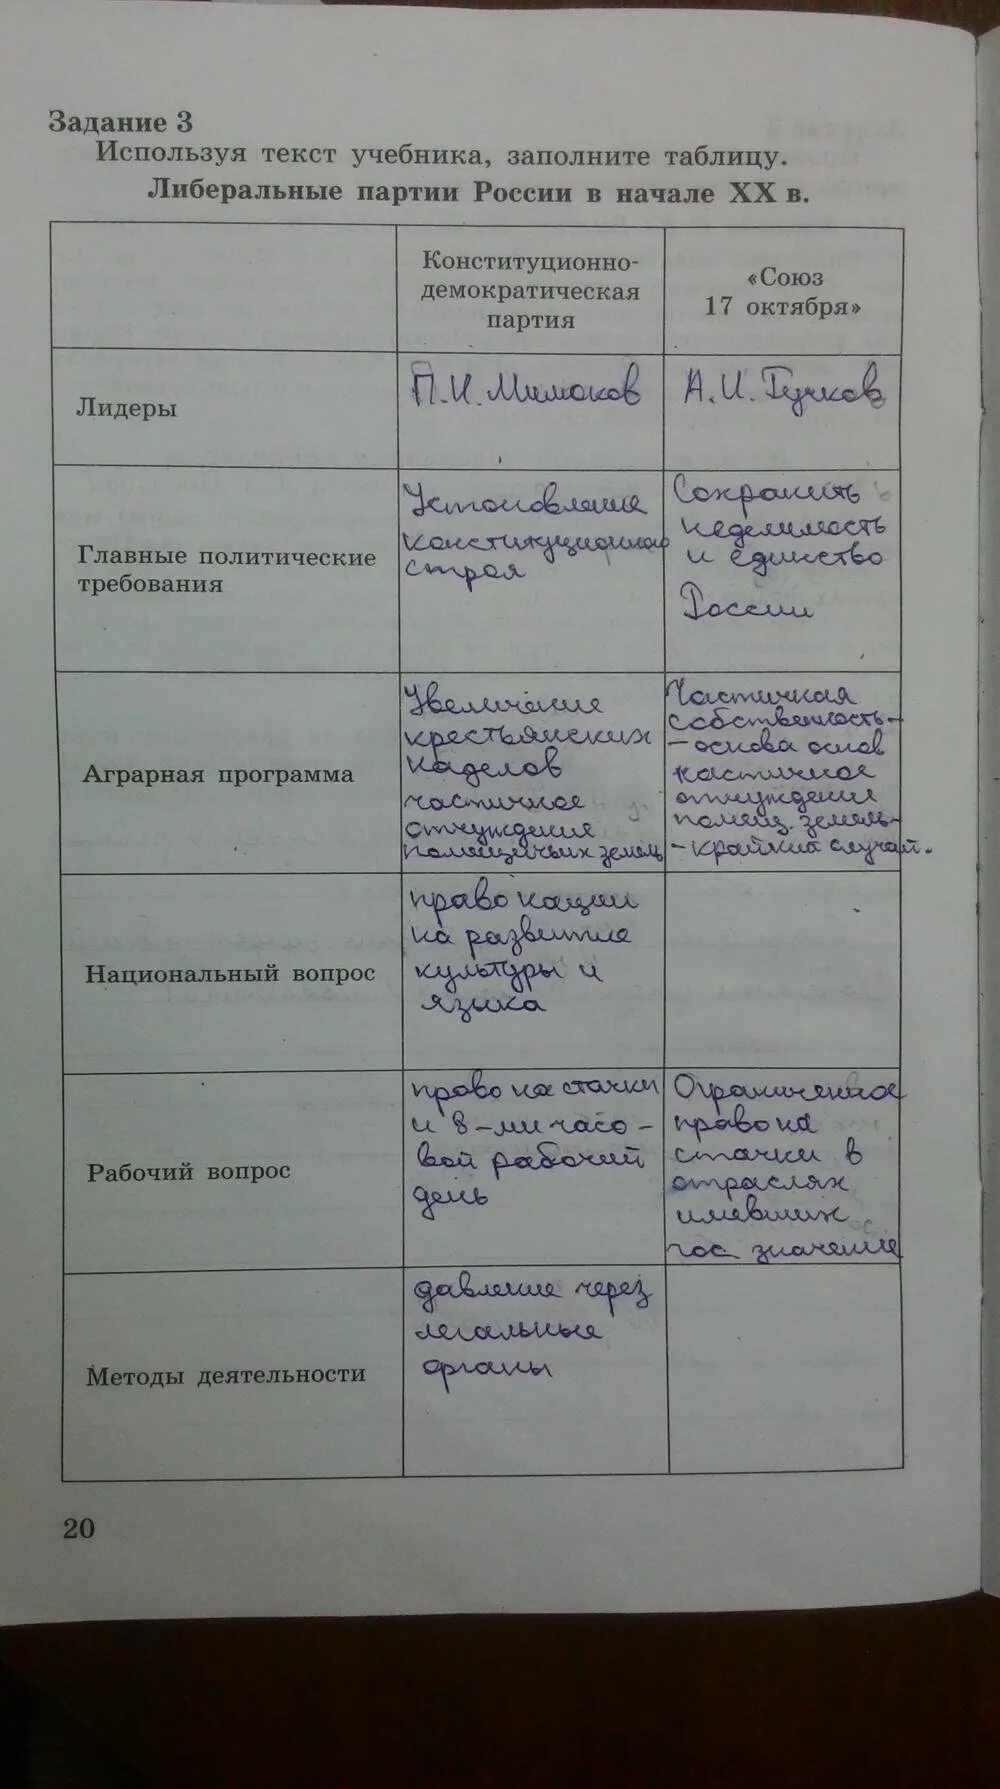 Задание 3
Используя текст учебника, заполните таблицу.
Либеральные партии России в начале XX в.
Конституционно-
демократическая
партия
«Союз
17 октября»
Лидеры
П.И. Милюков
А.И. Гучков
Главные политические
требования
Установление
конституционного
строя
Сохранить
неделимость
и единство
России
Аграрная программа
Увеличение
крестьянских
наделов
частичное
отчуждение
помещичьих земель
Частичная
собственность-
-основа основ
частичное
отчуждение
помещ. земель-
-крайний случай.
Национальный вопрос
право нации
на развитие
культуры и
языка
Рабочий вопрос
право на стачки
и 8-ми часо-
вой рабочий
день
Ограниченное
право на
стачки в
отраслях
имевших
гос. значение
Методы деятельности
давление через
легальные
органы
20